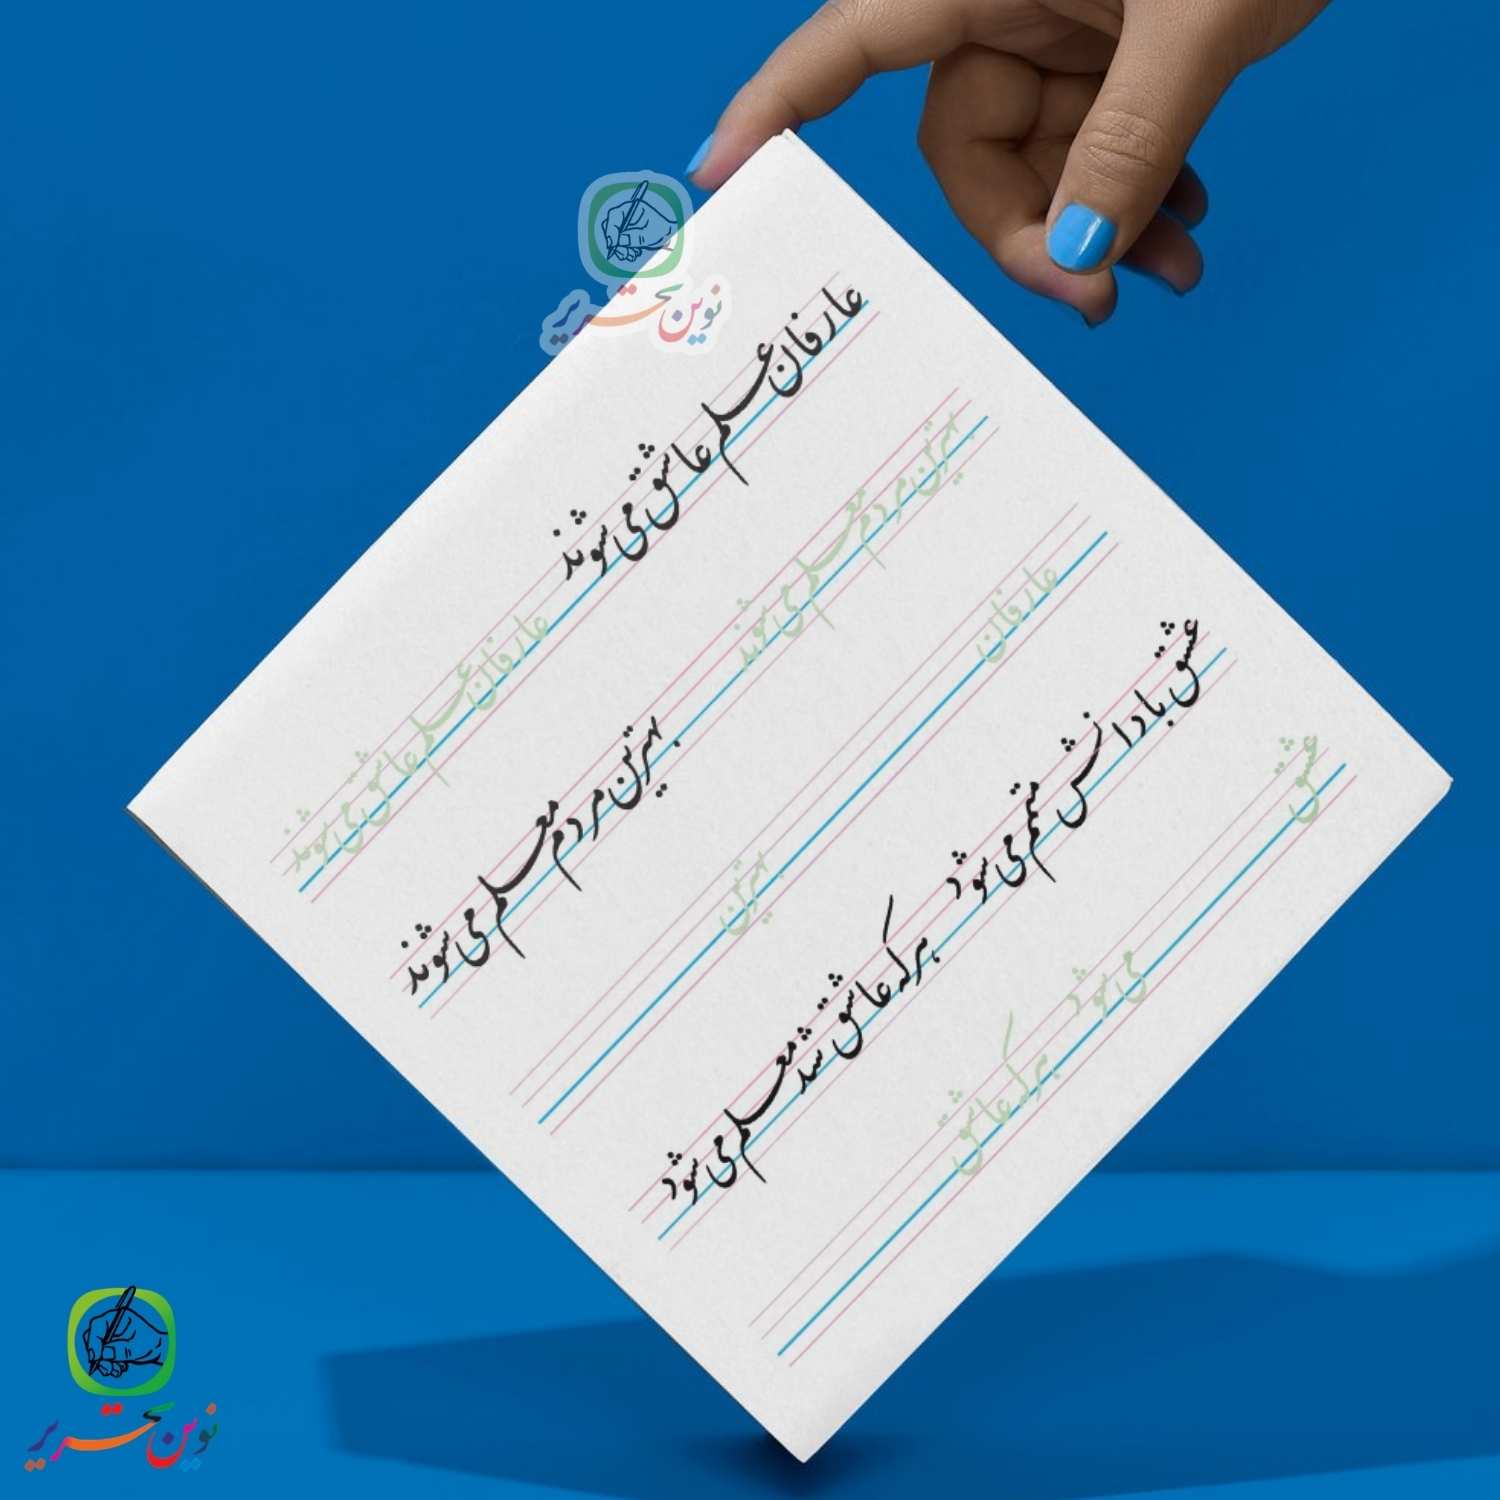 نوین تحریر
عارفان علم عاشق می شوند عارفان علم عاشق می شوند
بهترین مردم معلم می شوند بهترین مردم معلم می شوند
عارفان بهترین
عشق با دانش متمم می شود هر که عاشق شد معلم می شود
عشق می شود هر که عاشق
نوین تحریر